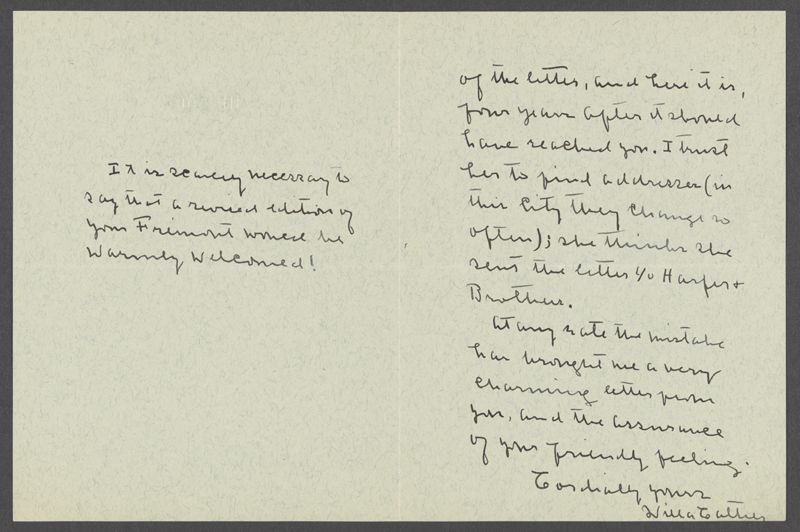 It is scarcely necessary to
say that a revised edition of
your Frémont would be
warmly welcomed!
of the letter, and here it is,
four years after it should
have reached you. I trust
her to find addresses (in
this City they change so
often); she thinks she
sent the letter c/o Harper &
Brothers.
At any rate the mistake
has brought me a very
charming letter from
you, and the assurance
of your friendly feeling.
Cordially yours
Willa Cather